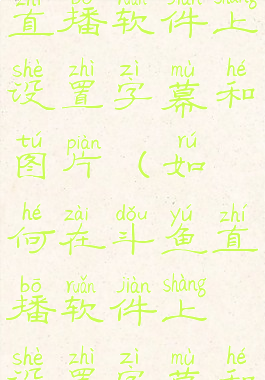 zhí bō ruǎn jiàn shàng
直播软件上
shè zhì zì mù hé
设置字幕和
tú piàn rú
图片（如
hé zài dǒu yú zhí
何在斗鱼直
bō ruǎn jiàn shàng
播软件上
shè zhì zì mù hé
设置字幕和